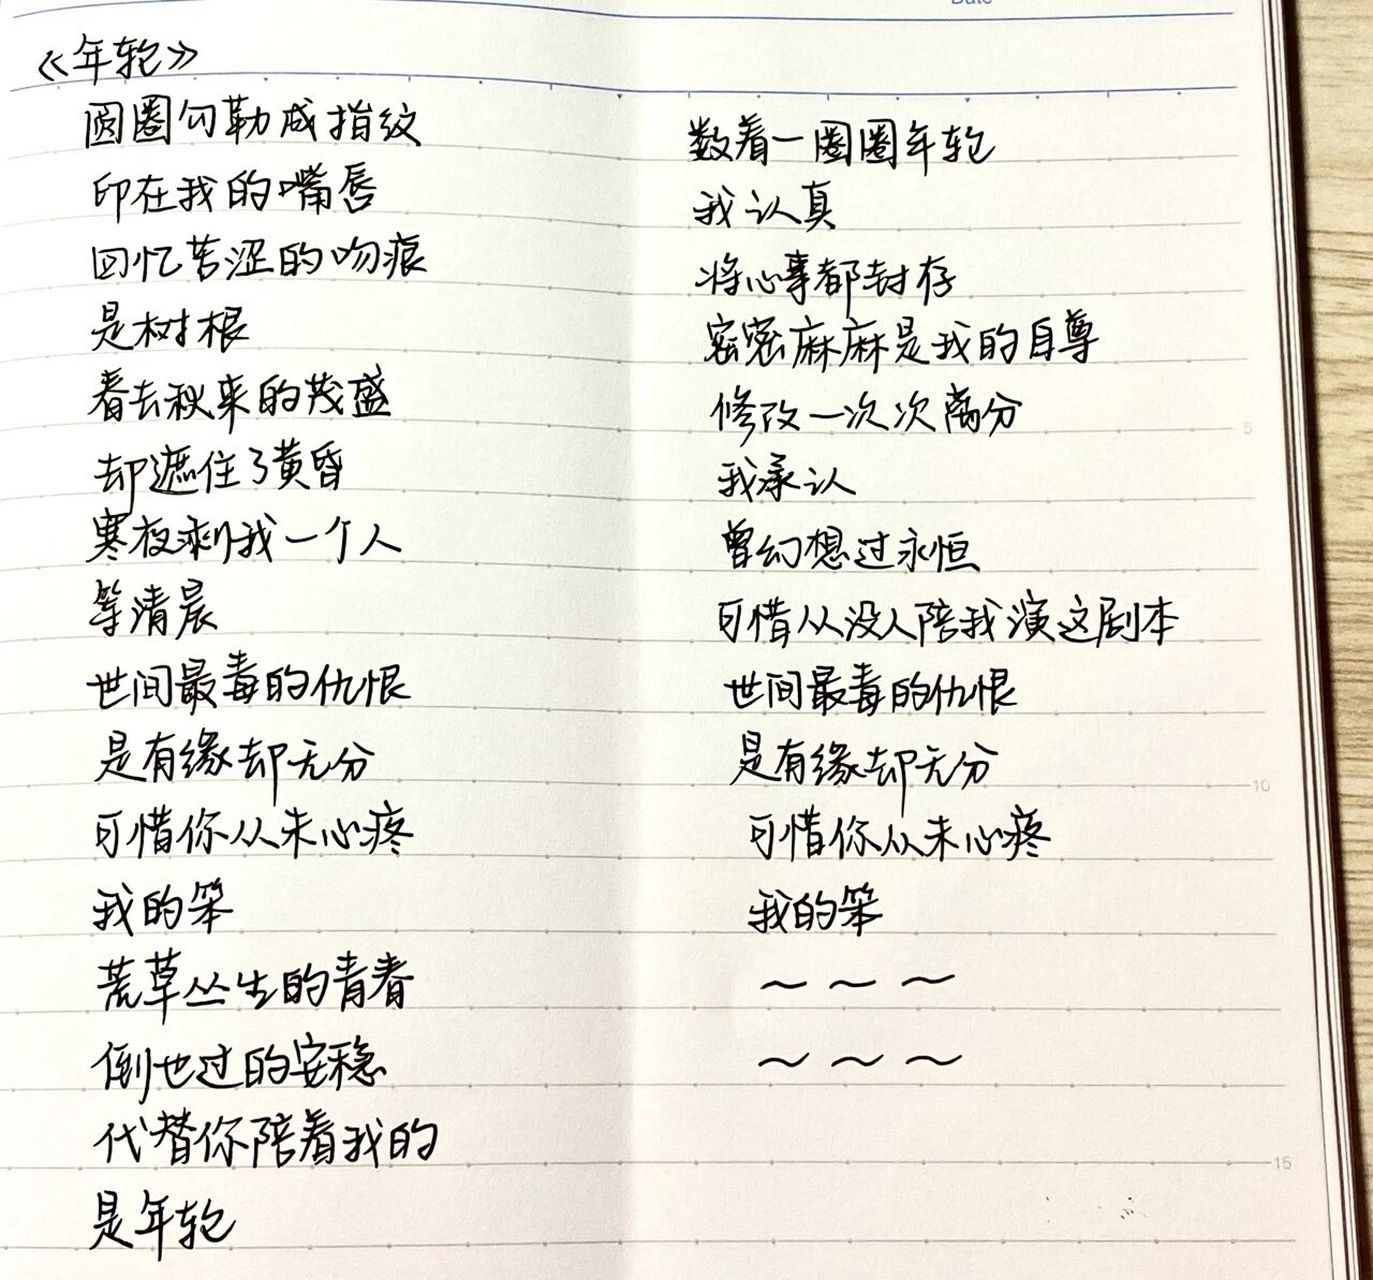 Date
《年轮》
圆圈勾勒成指纹
印在我的嘴唇
回忆苦涩的吻痕
是树根
春去秋来的茂盛
却遮住了黄昏
寒夜剩我一个人
等清晨
世间最毒的仇恨
是有缘却无分
可惜你从未心疼
我的笨
荒草丛生的青春
倒也过的安稳
代替你陪着我的
是年轮
数着一圈圈年轮
我认真
将心事都封存
密密麻麻是我的自尊
修改一次次离分
我承认
曾幻想过永恒
可惜从没人陪我演这剧本
世间最毒的仇恨
是有缘却无分
可惜你从未心疼
我的笨
～ ～ ～
～ ～ ～
5
10
15